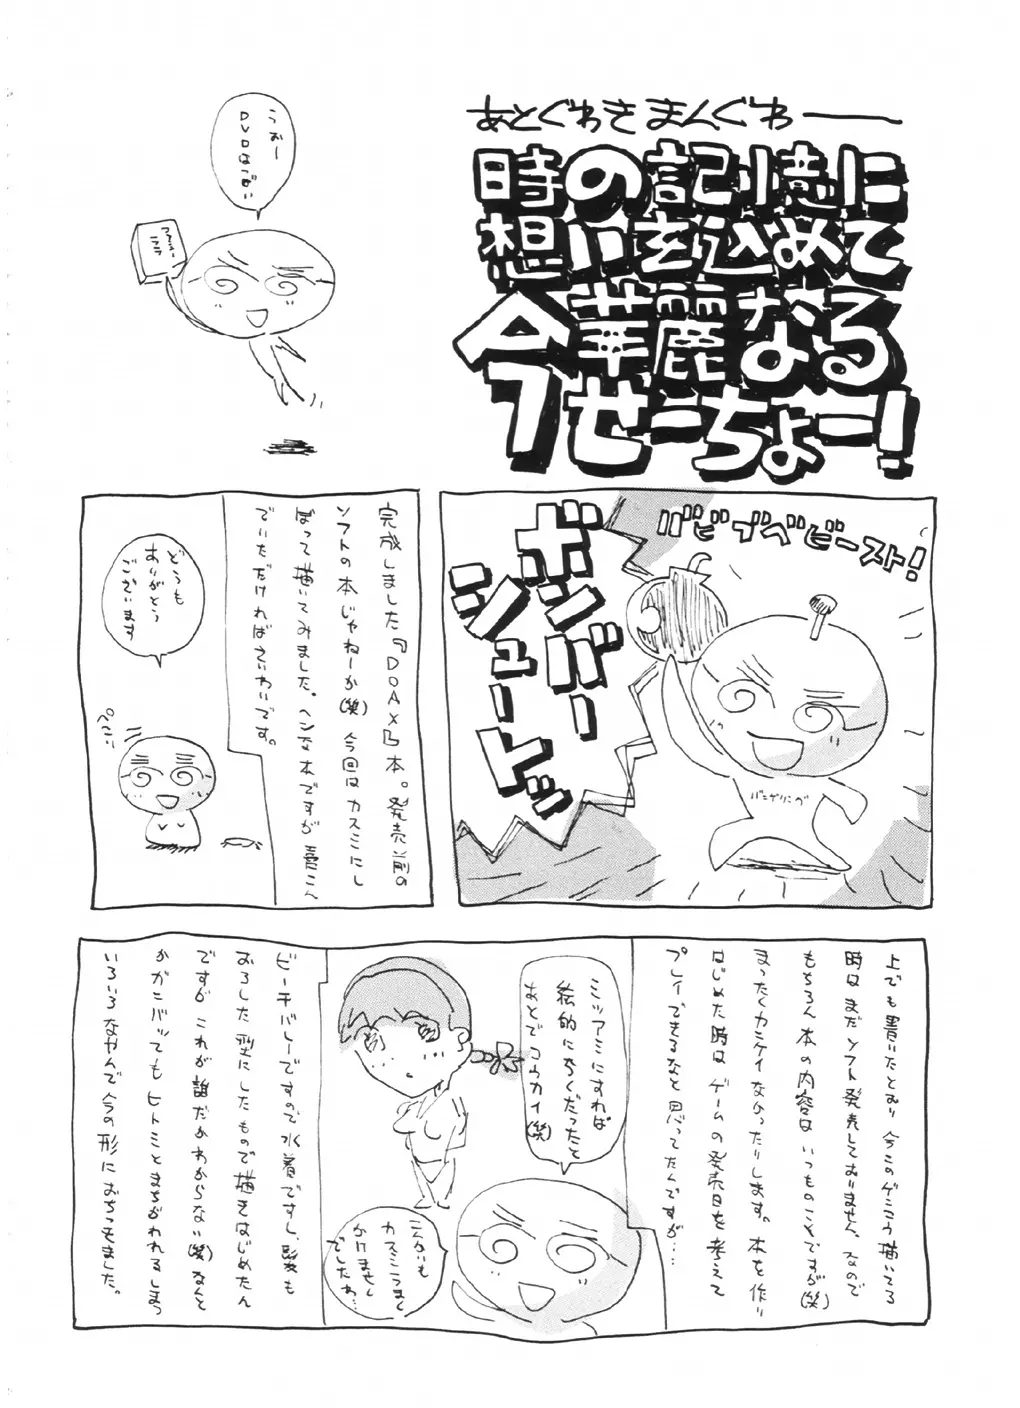 あとぐわきまんぐわ――
時の記憶に
想いを込めて
今華麗なる
せーちょー!
うおー
DVDはごい
バビブベビースト!
ボンバー
シュートッ
完成しました『DOAX』本。発売前の
ソフトの本じゃねーか(笑)今回はカスミにし
ぼって描いてみました。ヘンな本ですが
でいただければさいわいです。
どうも
ありがとう
ございます
ぺこっ
上でも書いたとおり今このゲンコウ描いてる
時はまだソフト発売しておりません。なので
もちろん本の内容はいつものことですが(笑)
まったくカンケイなかったりします。本を作り
はじめた時はゲームの発売日を考えて
プレイできるなと思ってたんですが…
ミツアミにすれば
絵的にらくだったと
あとでコウカイ(笑)
こんかいも
カスミこうまんし
かけません
でしたわ…
ビーチバレーですので水着ですし、髪も
おろした型にしたもので描きはじめたん
ですがこれが誰だかわからない(笑)なんと
かガンバってもヒトミとまちがわれるしまつ
いろいろなやんで今の形におちつきました。